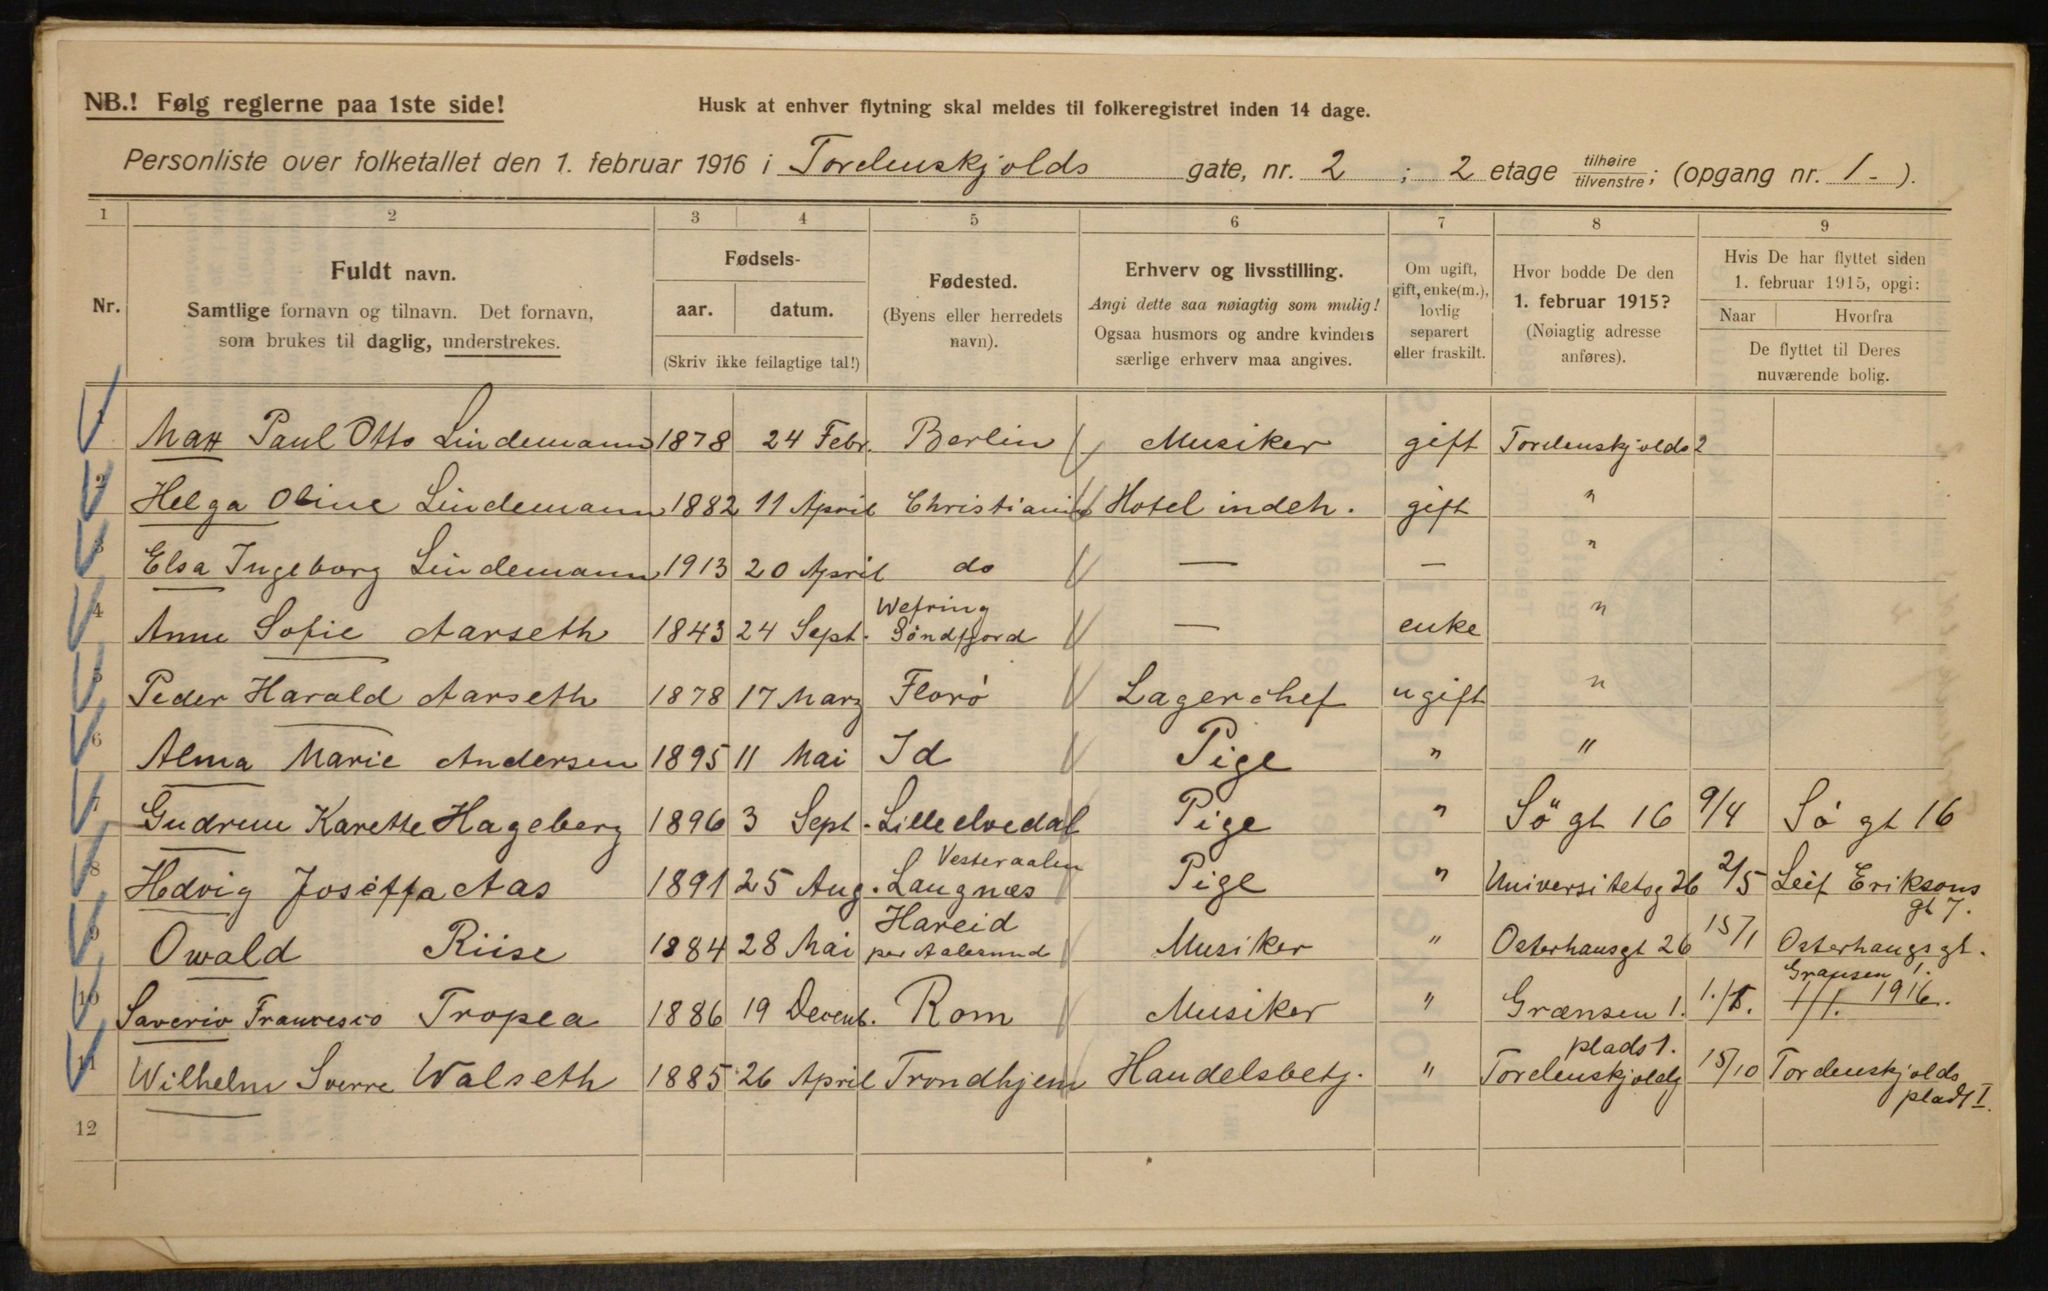 NB.! Følg reglerne paa 1ste side!
Husk at enhver flytning skal meldes til folkeregistret inden 14 dage.
Personliste over folketallet den 1. februar 1916 i Tordenskjolds gate, nr. 2 ; 2 etage tilhøire tilvenstre; (opgang nr. 1 - ).
1 2 3 4 5 6 7 8 9
Nr.
Fuldt navn.
Samtlige fornavn og tilnavn. Det fornavn,
som brukes til daglig, understrekes.
Fødsels-
aar. datum.
(Skriv ikke feilagtige tal!)
Fødested.
(Byens eller herredets
navn).
Erhverv og livsstilling.
Angi dette saa nøiagtig som mulig!
Ogsaa husmors og andre kvinders
særlige erhverv maa angives.
Om ugift,
gift, enke(m.),
lovlig
separert
eller fraskilt.
Hvor bodde De den
1. februar 1915?
(Nøiagtig adresse
anføres).
Hvis De har flyttet siden
1. februar 1915, opgi:
Naar Hvorfra
De flyttet til Deres
nuværende bolig.
1 Max Paul Otto Lindemann 1878 24 Febr. Berlin Musiker gift Tordenskjolds 2
2 Helga Oline Lindemann 1882 11 April Christiania Hotel indeh. gift "
3 Elsa Ingeborg Lindemann 1913 20 April do — — "
4 Anne Sofie Aarseth 1843 24 Sept. Wefring Søndfjord — enke "
5 Peder Harald Aarseth 1878 17 Marz Florø Lagerchef ugift "
6 Alma Marie Andersen 1895 11 Mai Id Pige " "
7 Gudrun Karette Hageberg 1896 3 Sept. Lilleelvedal Pige " Sö gt 16 9/4 Sö gt 16
8 Hedvig Joseffa Aas 1891 25 Aug. Vesteraalen Langnæs Pige " Universitetsg 26 2/5 Leif Eriksons gt 7.
9 Owald Riise 1884 28 Mai Hareid per Aalesund Musiker " Osterhausgt 26 15/1 Osterhaugsgt.
10 Saverio Francesco Tropea 1886 19 Decemb. Rom Musiker " Grænsen 1. Grausen 1. 1916.
11 Wilhelm Sverre Walseth 1885 26 April Trondhjem Handelsbetj. " Tordenskjolds plads 1. 15/10 Tordenskjolds plads I.
12